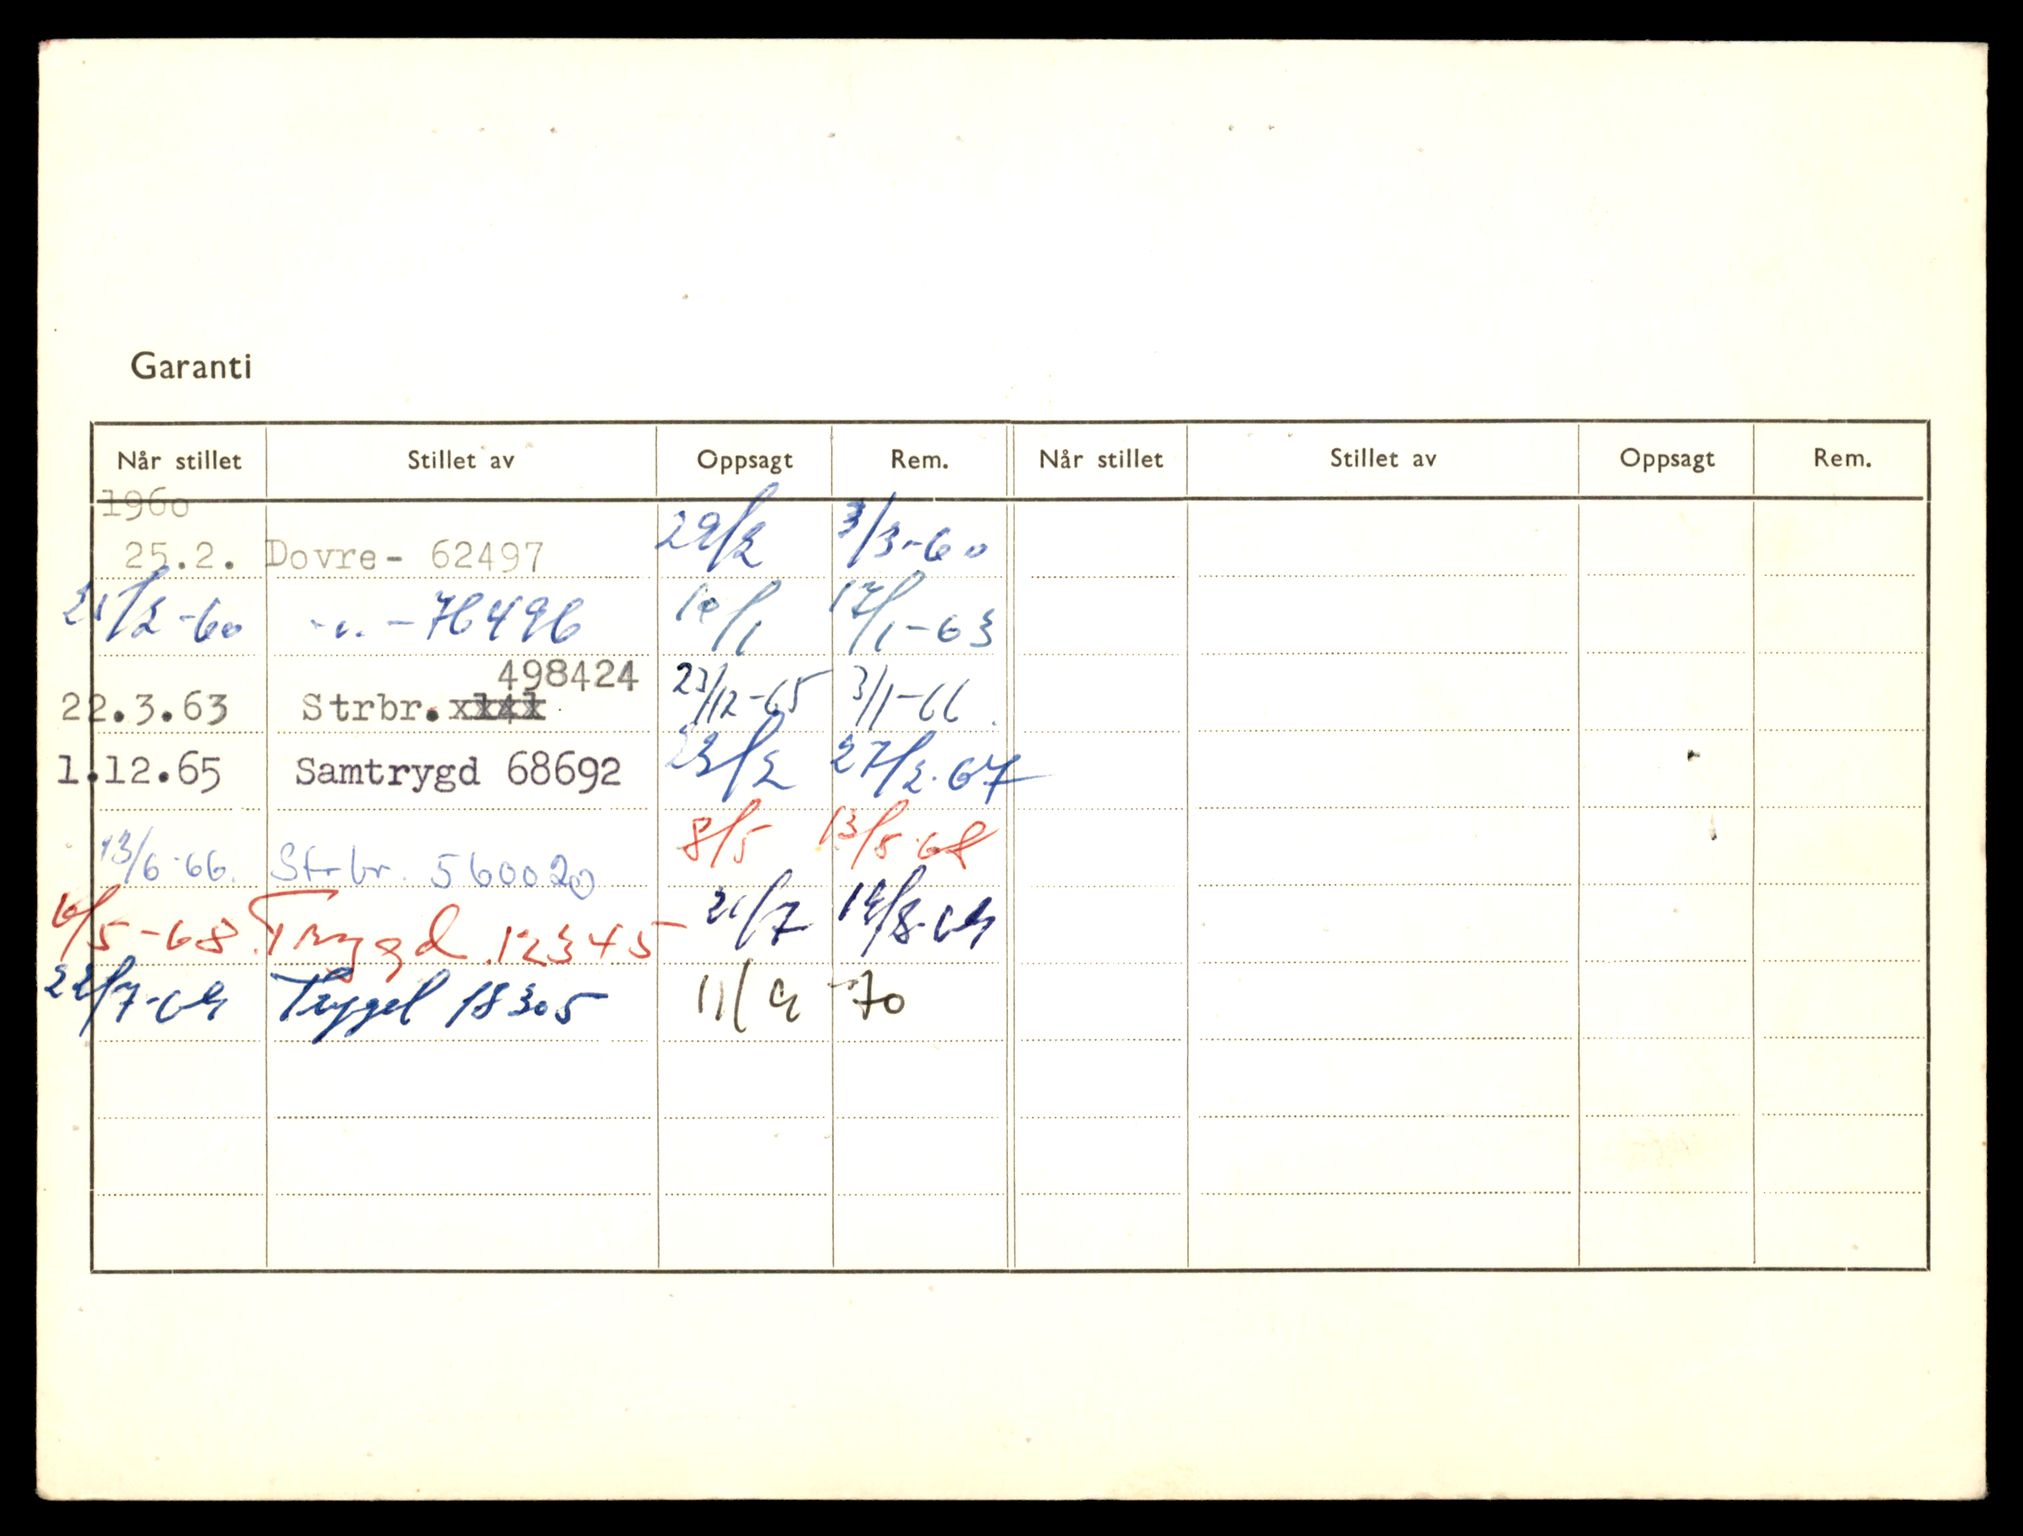 Garanti
Når stillet Stillet av Oppsagt Rem. Når stillet Stillet av Oppsagt Rem.
1960
25.2. Dovre- 62497 29/2 3/3-60
25/2-60 -"- -76496 10/1 17/1-63
498424
22.3.63 Strbr. 23/12-65 3/1-66
1.12.65 Samtrygd 68692 23/2 27/2-67
13/6-66. Strbr. 560020 8/5 13/5-68
6/5-68. Trygd. 12345 21/7 19/8-69
22/7-69 Trygd 18305 11/9 -70